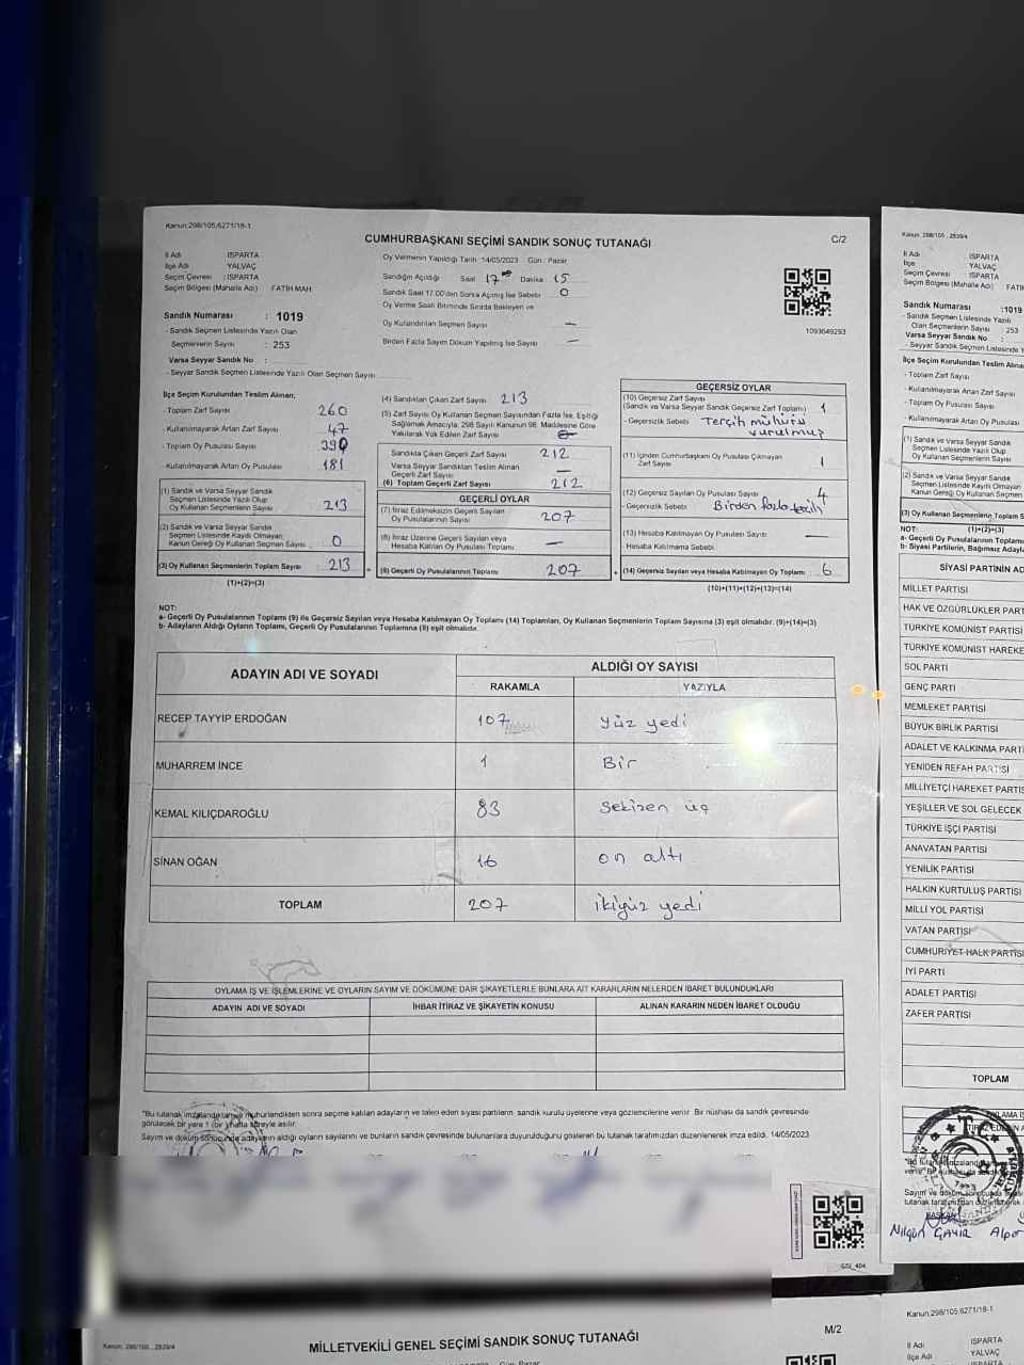 Kanun:298/105,6271/18-1
CUMHURBAŞKANI SEÇİMİ SANDIK SONUÇ TUTANAĞI
C/2
İl Adı : ISPARTA
İlçe Adı : YALVAÇ
Seçim Çevresi : ISPARTA
Seçim Bölgesi (Mahalle Adı) FATİH MAH.
Oy Vermenin Yapıldığı Tarih :14/05/2023 Gün : Pazar
Sandığın Açıldığı Saat 17 Dakika 15
Sandık Saat 17.00'den Sonra Açılmış İse Sebebi 0
Oy Verme Saati Bitiminde Sırada Bekleyen ve
Oy Kullandırılan Seçmen Sayısı —
Birden Fazla Sayım Döküm Yapılmış İse Sayısı —
1093649293
Sandık Numarası : 1019
- Sandık Seçmen Listesinde Yazılı Olan
Seçmenlerin Sayısı : 253
Varsa Seyyar Sandık No :
- Seyyar Sandık Seçmen Listesinde Yazılı Olan Seçmen Sayısı
İlçe Seçim Kurulundan Teslim Alınan;
- Toplam Zarf Sayısı 260
- Kullanılmayarak Artan Zarf Sayısı 47
- Toplam Oy Pusulası Sayısı
- Kullanılmayarak Artan Oy Pusulası 181
(1) Sandık ve Varsa Seyyar Sandık
Seçmen Listesinde Yazılı Olup
Oy Kullanan Seçmenlerin Sayısı 213
(2) Sandık ve Varsa Seyyar Sandık
Seçmen Listesinde Kayıtlı Olmayan,
Kanun Gereği Oy Kullanan Seçmen Sayısı 0
(3) Oy Kullanan Seçmenlerin Toplam Sayısı 213
(1)+(2)=(3)
(4) Sandıktan Çıkan Zarf Sayısı 213
(5) Zarf Sayısı Oy Kullanan Seçmen Sayısından Fazla İse, Eşitliği
Sağlamak Amacıyla, 298 Sayılı Kanunun 98. Maddesine Göre
Yakılarak Yok Edilen Zarf Sayısı
Sandıkta Çıkan Geçerli Zarf Sayısı 212
Varsa Seyyar Sandıktan Teslim Alınan
Geçerli Zarf Sayısı —
(6) Toplam Geçerli Zarf Sayısı 212
GEÇERLİ OYLAR
(7) İtiraz Edilmeksizin Geçerli Sayılan
Oy Pusulalarının Sayısı 207
(8) İtiraz Üzerine Geçerli Sayılan veya
Hesaba Katılan Oy Pusulası Toplamı —
(9) Geçerli Oy Pusulalarının Toplamı 207
GEÇERSİZ OYLAR
(10) Geçersiz Zarf Sayısı
(Sandık ve Varsa Seyyar Sandık Geçersiz Zarf Toplamı) 1
- Geçersizlik Sebebi Tercih mührü
vurulmuş
(11) İçinden Cumhurbaşkanı Oy Pusulası Çıkmayan
Zarf Sayısı 1
(12) Geçersiz Sayılan Oy Pusulası Sayısı 4
- Geçersizlik Sebebi Birden fazla tercih
(13) Hesaba Katılmayan Oy Pusulası Sayısı —
Hesaba Katılmama Sebebi
(14) Geçersiz Sayılan veya Hesaba Katılmayan Oy Toplamı 6
(10)+(11)+(12)+(13)=(14)
NOT:
a- Geçerli Oy Pusulalarının Toplamı (9) ile Geçersiz Sayılan veya Hesaba Katılmayan Oy Toplamı (14) Toplamları, Oy Kullanan Seçmenlerin Toplam Sayısına (3) eşit olmalıdır. (9)+(14)=(3)
b- Adayların Aldığı Oyların Toplamı, Geçerli Oy Pusulalarının Toplamına (9) eşit olmalıdır.
ADAYIN ADI VE SOYADI ALDIĞI OY SAYISI
RAKAMLA YAZIYLA
RECEP TAYYİP ERDOĞAN 107 yüz yedi
MUHARREM İNCE 1 Bir
KEMAL KILIÇDAROĞLU 83 seksen üç
SİNAN OĞAN 16 on altı
TOPLAM 207 ikiyüz yedi
OYLAMA İŞ VE İŞLEMLERİNE VE OYLARIN SAYIM VE DÖKÜMÜNE DAİR ŞİKAYETLERLE BUNLARA AİT KARARLARIN NELERDEN İBARET BULUNDUKLARI
ADAYIN ADI VE SOYADI İHBAR İTİRAZ VE ŞİKAYETİN KONUSU ALINAN KARARIN NEDEN İBARET OLDUĞU
"Bu tutanak imzalandıktan ve mühürlendikten sonra seçime katılan adayların ve talep eden siyasi partilerin, sandık kurulu üyelerine veya gözlemcilerine verilir. Bir nüshası da sandık çevresinde
görülecek bir yere 1 (bir) hafta süreyle asılır.
Sayım ve döküm sonucunda adayların aldığı oyların sayılarını ve bunların sandık çevresinde bulunanlara duyurulduğunu gösteren bu tutanak tarafımızdan düzenlenerek imza edildi. 14/05/2023
Kanun: 298/105 , 2839/4
İl Adı ISPARTA
İlçe YALVAÇ
Seçim Çevresi ISPARTA
Seçim Bölgesi (Mahalle Adı) FATİH
Sandık Numarası :1019
- Sandık Seçmen Listesinde Yazılı
Olan Seçmenlerin Sayısı : 253
Varsa Seyyar Sandık No :
- Seyyar Sandık Seçmen Listesinde Y
İlçe Seçim Kurulundan Teslim Alınan
- Toplam Zarf Sayısı
- Kullanılmayarak Artan Zarf Sayısı
- Toplam Oy Pusulası Sayısı
- Kullanılmayarak Artan Oy Pusulası
(1) Sandık ve Varsa Seyyar Sandık
Seçmen Listesinde Yazılı Olup
Oy Kullanan Seçmenlerin Sayısı
(2) Sandık ve Varsa Seyyar Sandık
Seçmen Listesinde Kayıtlı Olmayan
Kanun Gereği Oy Kullanan Seçmen
(3) Oy Kullanan Seçmenlerin Toplam S
(1)+(2)=(3)
NOT:
a- Geçerli Oy Pusulalarının Toplamı
b- Siyasi Partilerin, Bağımsız Adayla
SİYASİ PARTİNİN AD
MİLLET PARTİSİ
HAK VE ÖZGÜRLÜKLER PART
TÜRKİYE KOMÜNİST PARTİSİ
TÜRKİYE KOMÜNİST HAREKE
SOL PARTİ
GENÇ PARTİ
MEMLEKET PARTİSİ
BÜYÜK BİRLİK PARTİSİ
ADALET VE KALKINMA PARTİ
YENİDEN REFAH PARTİSİ
MİLLİYETÇİ HAREKET PARTİS
YEŞİLLER VE SOL GELECEK
TÜRKİYE İŞÇİ PARTİSİ
ANAVATAN PARTİSİ
YENİLİK PARTİSİ
HALKIN KURTULUŞ PARTİSİ
MİLLİ YOL PARTİSİ
VATAN PARTİSİ
CUMHURİYET HALK PARTİSİ
İYİ PARTİ
ADALET PARTİSİ
ZAFER PARTİSİ
TOPLAM
T.C.
Nilgün ÇAYIR Alper
MİLLETVEKİLİ GENEL SEÇİMİ SANDIK SONUÇ TUTANAĞI
M/2
Kanun: 298/105 , 2839/4
Kanun:298/105,6271/18-1
İl Adı ISPARTA
İlçe Adı YALVAÇ